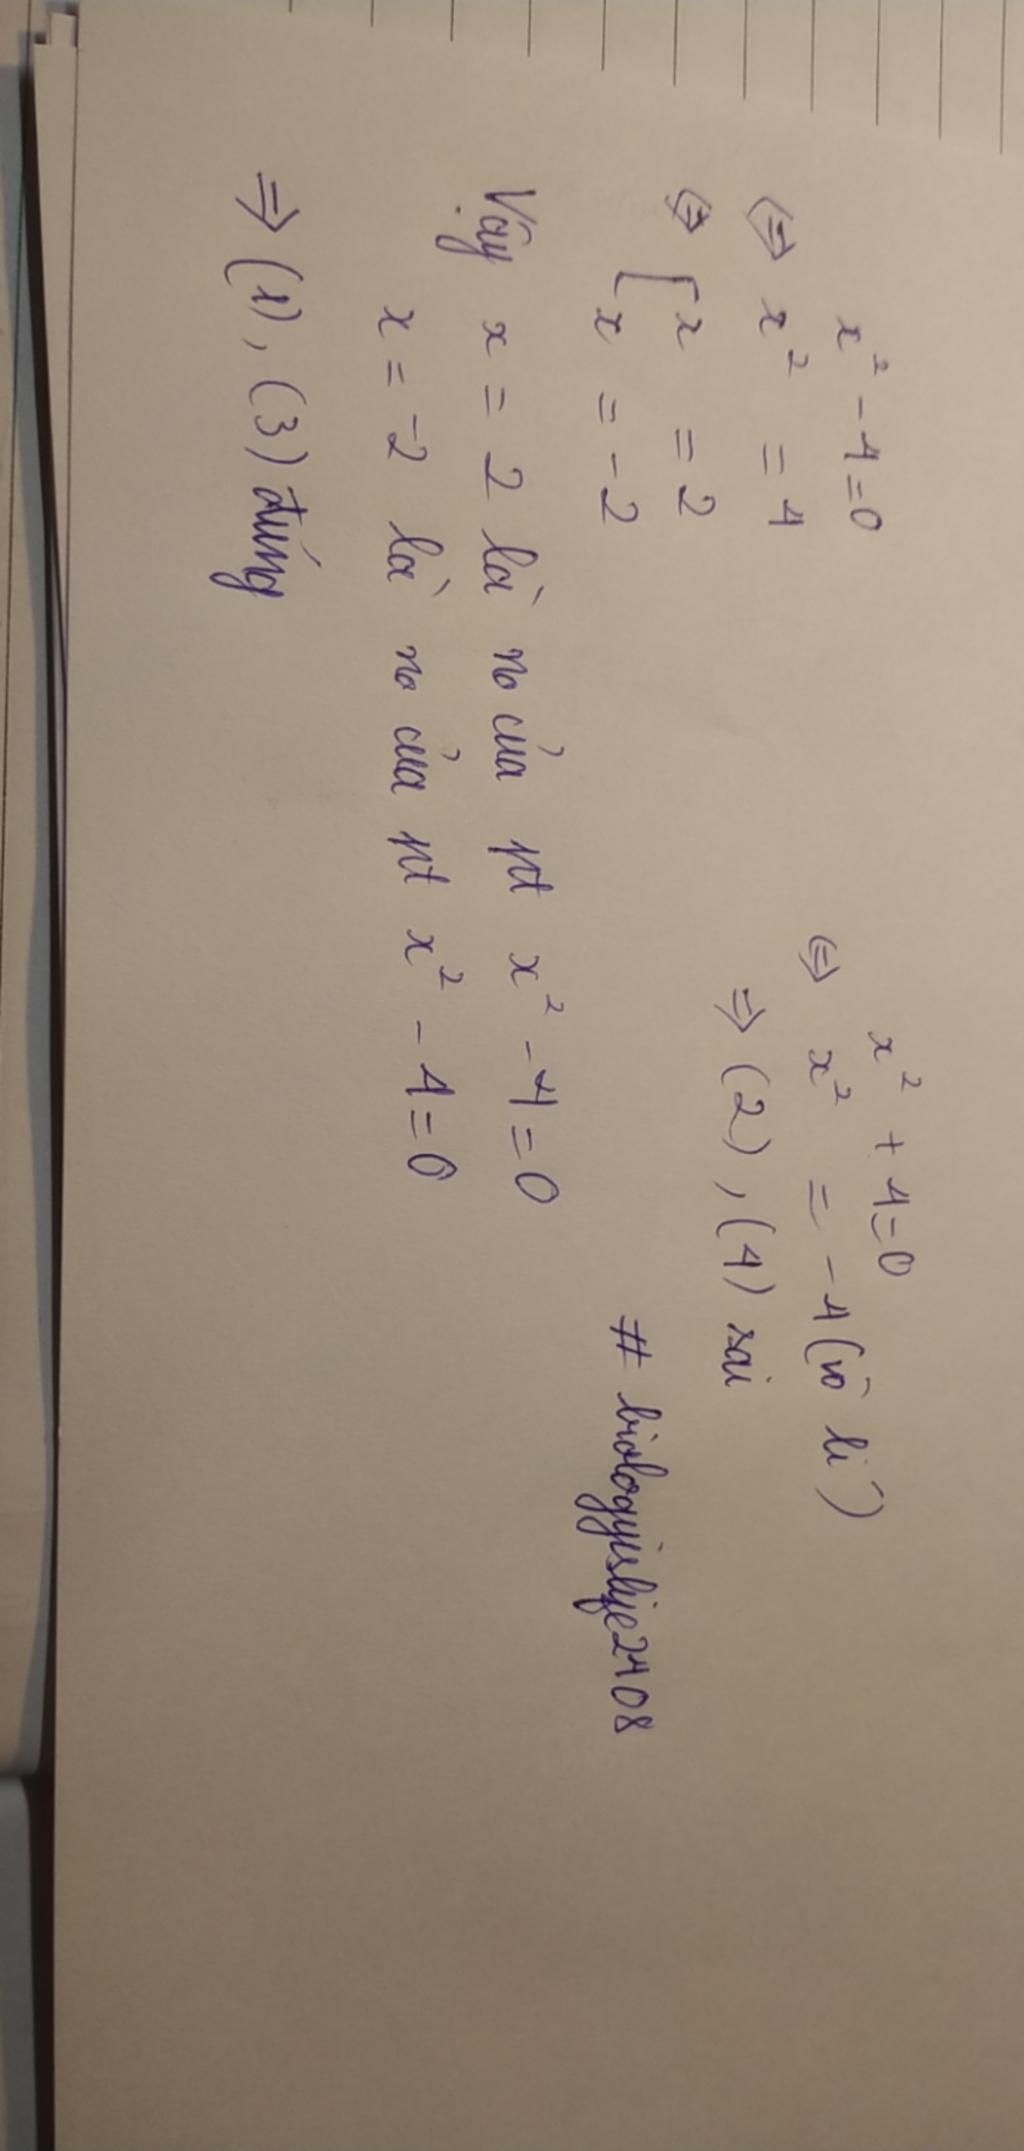 x² - 4 = 0
⇔ x² = 4
⇔ [ x = 2
x = -2
Vậy x = 2 là no của pt x² - 4 = 0
x = -2 là no của pt x² - 4 = 0
⇒ (1), (3) đúng
x² + 4 = 0
⇔ x² = -4 (vô lí)
⇒ (2), (4) sai
# biologyislife2408